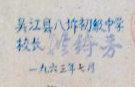 吴江县八坼初级中学
校长
一九六三年七月